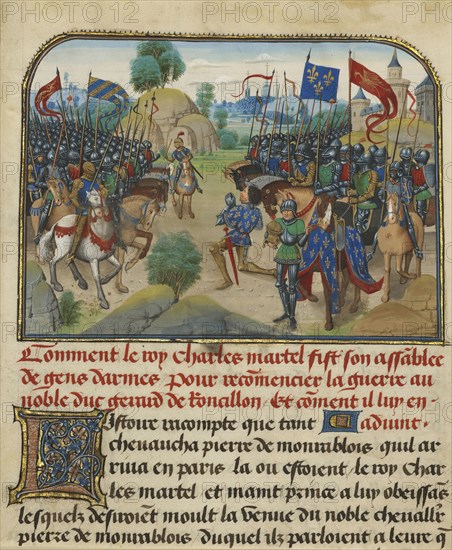 Comment le roy Charles martel fist son assãblee
de gens darmes pour recõmencier la guerre au
noble duc gerard de Ronsillon Et cõment il luy en-
advint.
L istoire racompte que tant
chevaucha pierre de monrablois quil ar
riva en paris la ou estoient le roy Char
les martel et maint prince a luy obeissãs
lesquelz desiroient moult la venue du noble chevallr
pierre de monrablois duquel ilz parloient a leure q̃